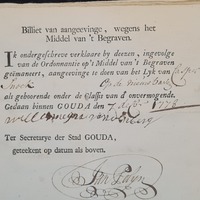 Billiet van aangeevinge, wegens het
Middel van 't Begraven.
Ik ondergeschreve verklaare by deezen, ingevolge
van de Ordonnantie op 't Middel van 't Begraven
geëmaneert, aangevinge te doen van het Lyk van
Snoek
als gehoorende onder de Classis van d' onvermogende.
Gedaan binnen GOUDA den 7 1776
Ter Secretarye der Stad GOUDA,
geteekent op datum als boven.